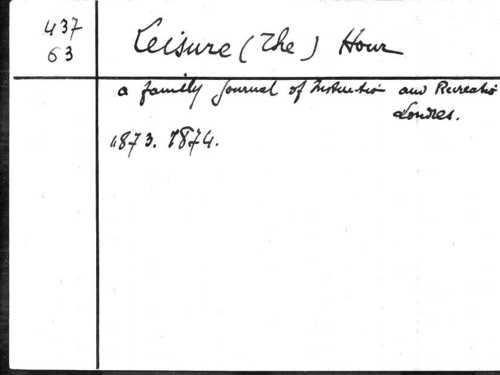 437
63
Leisure (The) Hour
a family Journal of Instruction and Recreatio
Londres.
1873. 1874.